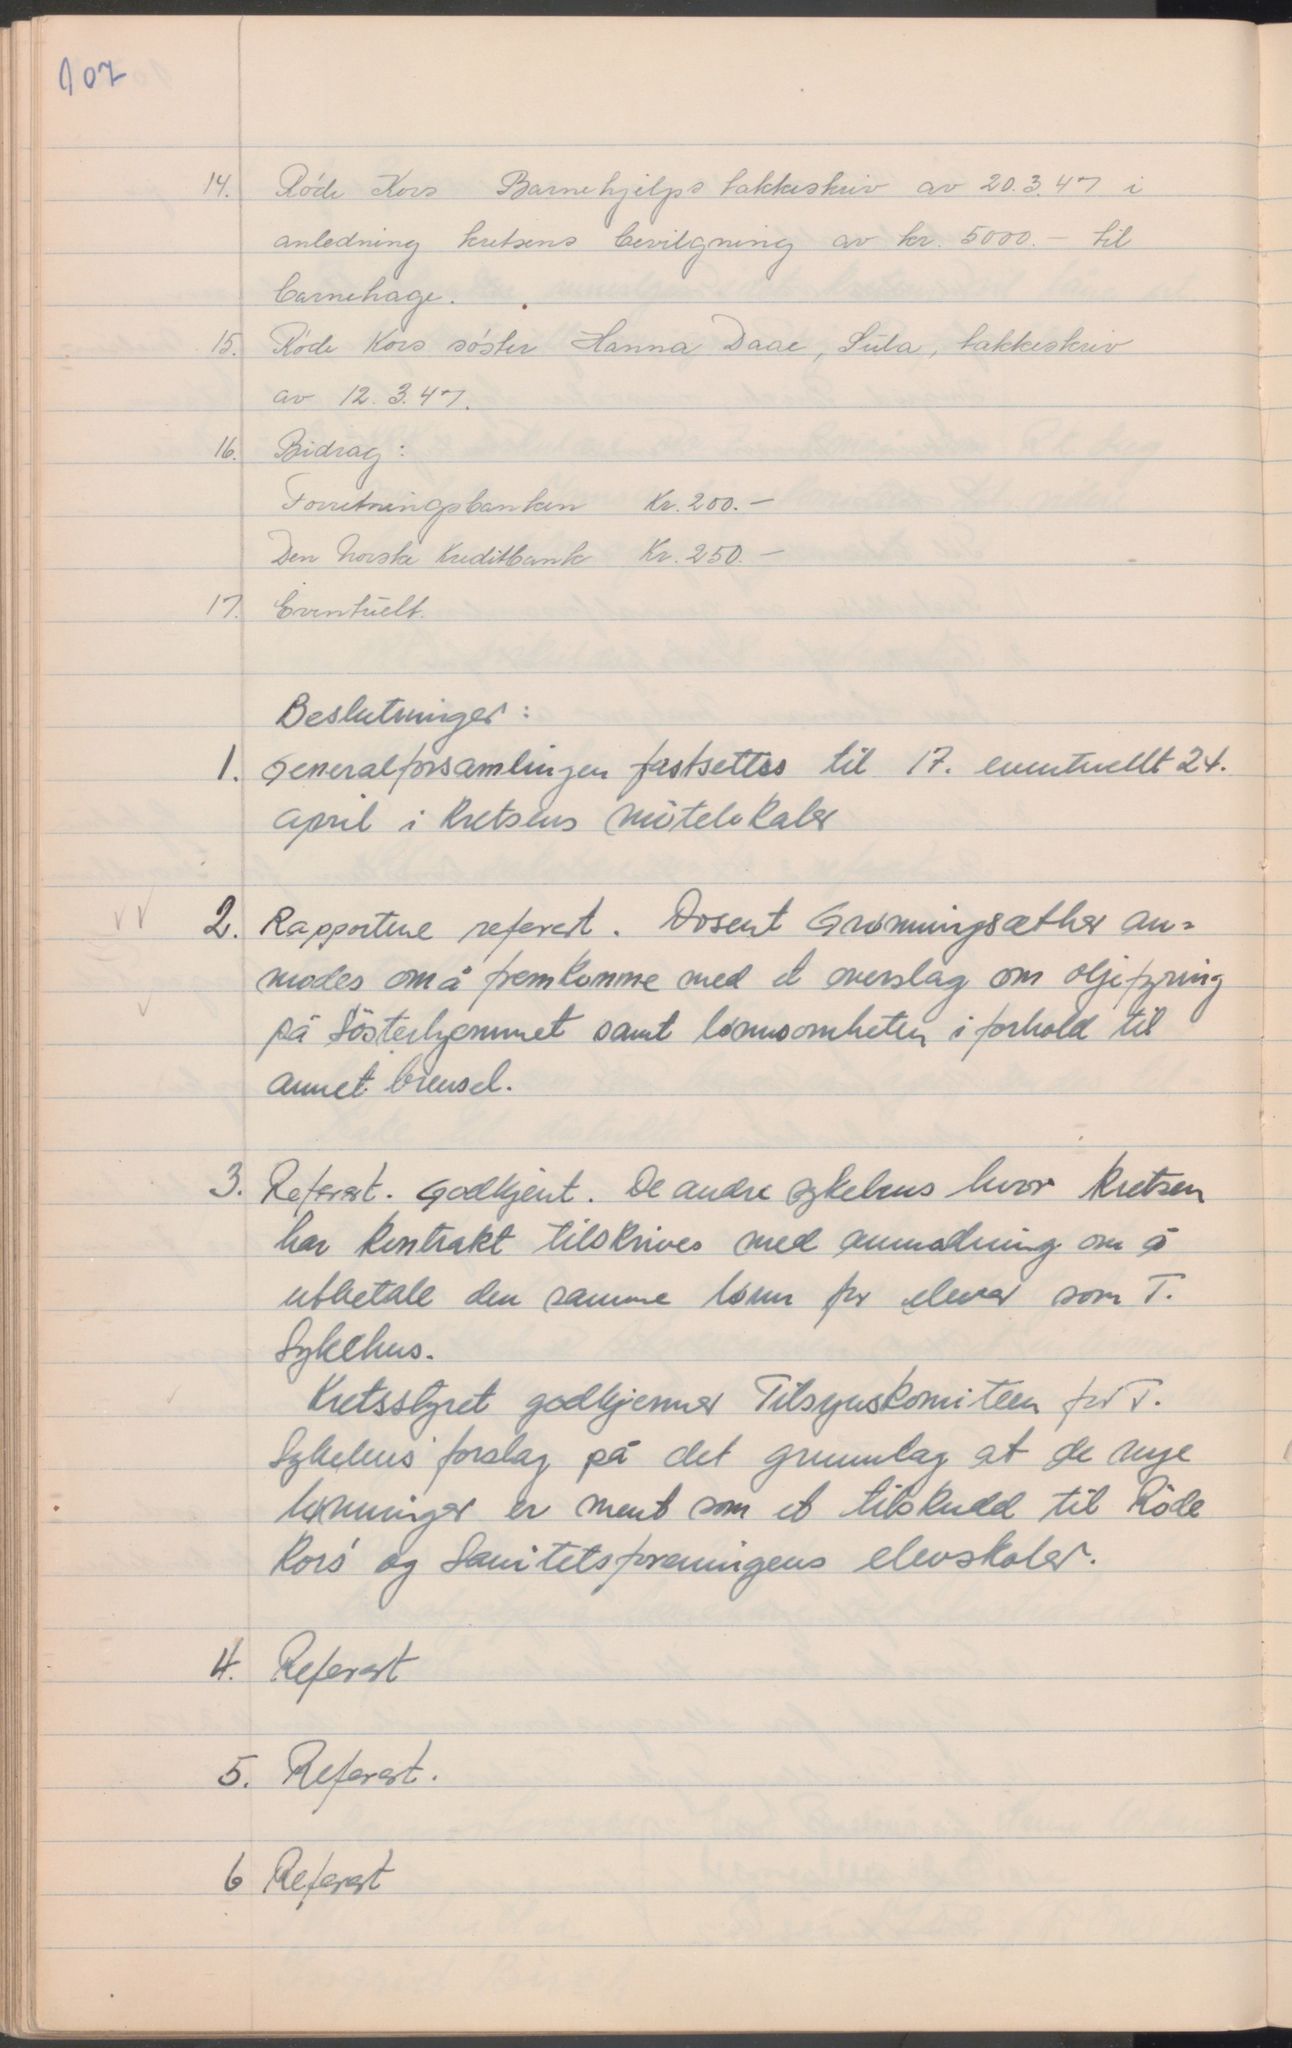 107
14. Røde Kors Barnehjelps takkeskriv av 20.3.47 i
anledning kretsens bevilgning av kr. 5000.— til
barnehage.
15. Røde Kors søster Hanna Daae, Sula, takkeskriv
av 12.3.47.
16. Bidrag:
Forretningsbanken Kr. 200.—
Den norske Kreditbank Kr. 250.—
17. Eventuelt.
Beslutninger:
1. Generalforsamlingen fastsettes til 17. eventuellt 24.
april i Kretsens møtelokaler
2. Rapportene referert. Dosent Grønningsæther an=
modes om å fremkomme med et overslag om oljefyring
på Søsterhjemmet samt lønnsomheten i forhold til
annet brensel.
3. Referert. Godkjent. De andre sykehus hvor Kretsen
har kontrakt tilskrives med anmodning om å
utbetale den samme lønn for elever som T.
Sykehus.
Kretsstyret godkjenner Tilsynskomiteen for T.
Sykehus' forslag på det grunnlag at de nye
lønninger er ment som et tilskudd til Røde
Kors' og Sanitetsforeningens elevskoler.
4. Referert
5. Referert.
6 Referert